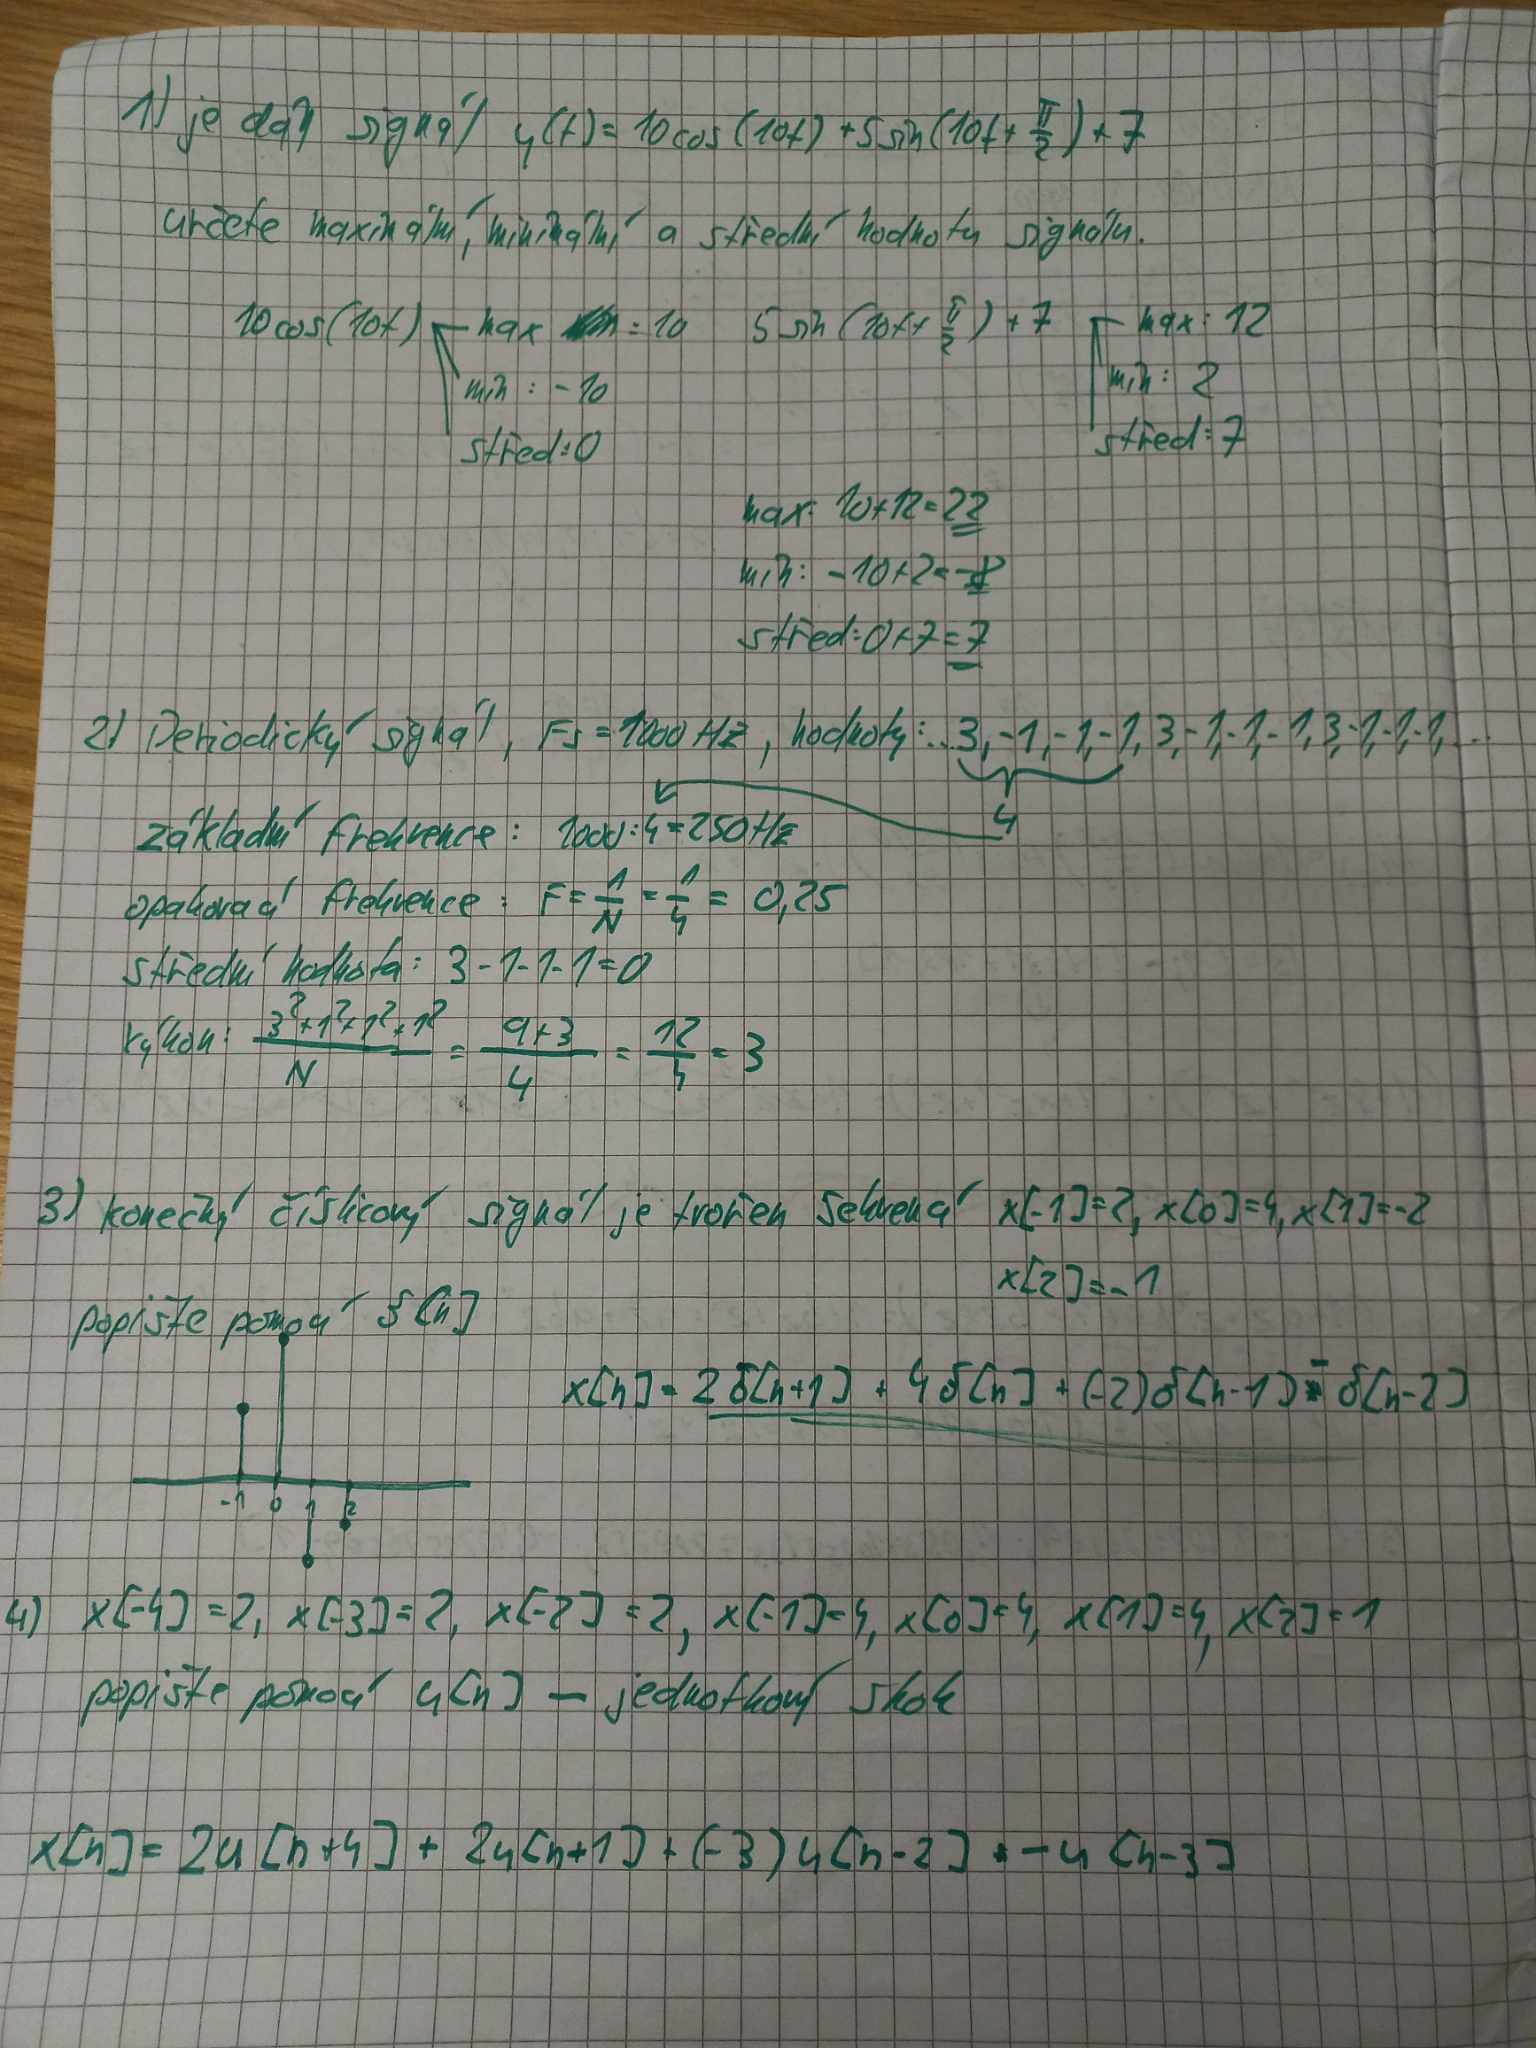 1) je dán signál y(t) = 10 cos(10t) + 5 sin(10t + π/2) + 7
určete maximální, minimální a střední hodnotu signálu.
10 cos(10t) max = 10 5 sin(10t + π/2) + 7 max: 12
min: -10 min: 2
střed: 0 střed: 7
max: 10+12 = 22
min: -10+2 = -8
střed: 0+7 = 7
2) Periodický signál, Fs = 1000 Hz, hodnoty: ...3,-1,-1,-1,3,-1,-1,-1,3,-1,-1,-1,...
4
základní frekvence: 1000:4=250Hz
opakovací frekvence: F = 1/N = 1/4 = 0,25
střední hodnota: 3-1-1-1=0
výkon: (3²+1²+1²+1²)/N = (9+3)/4 = 12/4 = 3
3) konečný číslicový signál je tvořen sekvencí x[-1]=2, x[0]=4, x[1]=-2
x[2]=-1
popište pomocí δ[n]
x[n] = 2δ[n+1] + 4δ[n] + (-2)δ[n-1] - δ[n-2]
-1 0 1 2
4) x[-4]=2, x[-3]=2, x[-2]=2, x[-1]=4, x[0]=4, x[1]=4, x[2]=1
popište pomocí u[n] – jednotkový skok
x[n] = 2u[n+4] + 2u[n+1] + (-3)u[n-2] + -u[n-3]